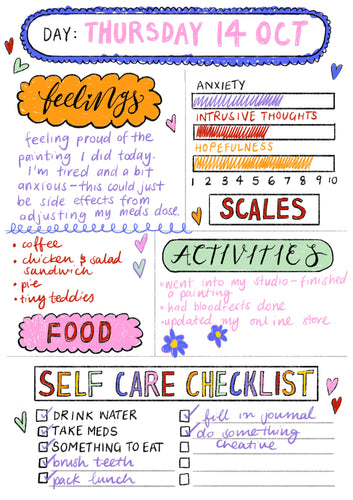 DAY: THURSDAY 14 OCT
feelings
feeling proud of the
painting I did today.
I'm tired and a bit
anxious - this could just
be side effects from
adjusting my meds dose.
ANXIETY
INTRUSIVE THOUGHTS
HOPEFULNESS
1 2 3 4 5 6 7 8 9 10
SCALES
• coffee
• chicken & salad
sandwich
• pie
• tiny teddies
FOOD
ACTIVITIES
• went into my studio - finished
a painting
• had blood tests done
• updated my online store
SELF CARE CHECKLIST
DRINK WATER
TAKE MEDS
SOMETHING TO EAT
brush teeth
pack lunch
fill in journal
do something
creative